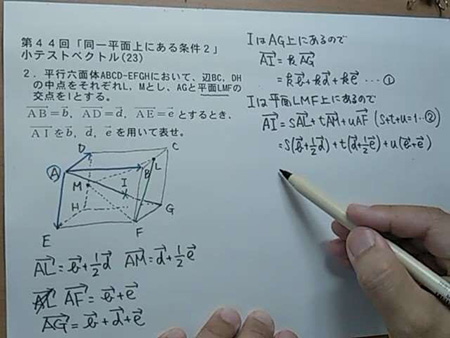 第４４回「同一平面上にある条件２」
小テストベクトル(23)
２．平行六面体ABCD-EFGHにおいて、辺BC, DH
の中点をそれぞれL, Mとし、AGと平面LMFの
交点をIとする。
AB=b, AD=d, AE=e とするとき、
AIをb, d, e を用いて表せ。
D C
A B L
M I
H G
E F
AL=b+1/2d AM=d+1/2e
AF=b+e
AG=b+d+e
IはAG上にあるので
AI=kAG
=kb+kd+ke …①
Iは平面LMF上にあるので
AI=sAL+tAM+uAF (s+t+u=1…②)
=s(b+1/2d)+t(d+1/2e)+u(b+e)